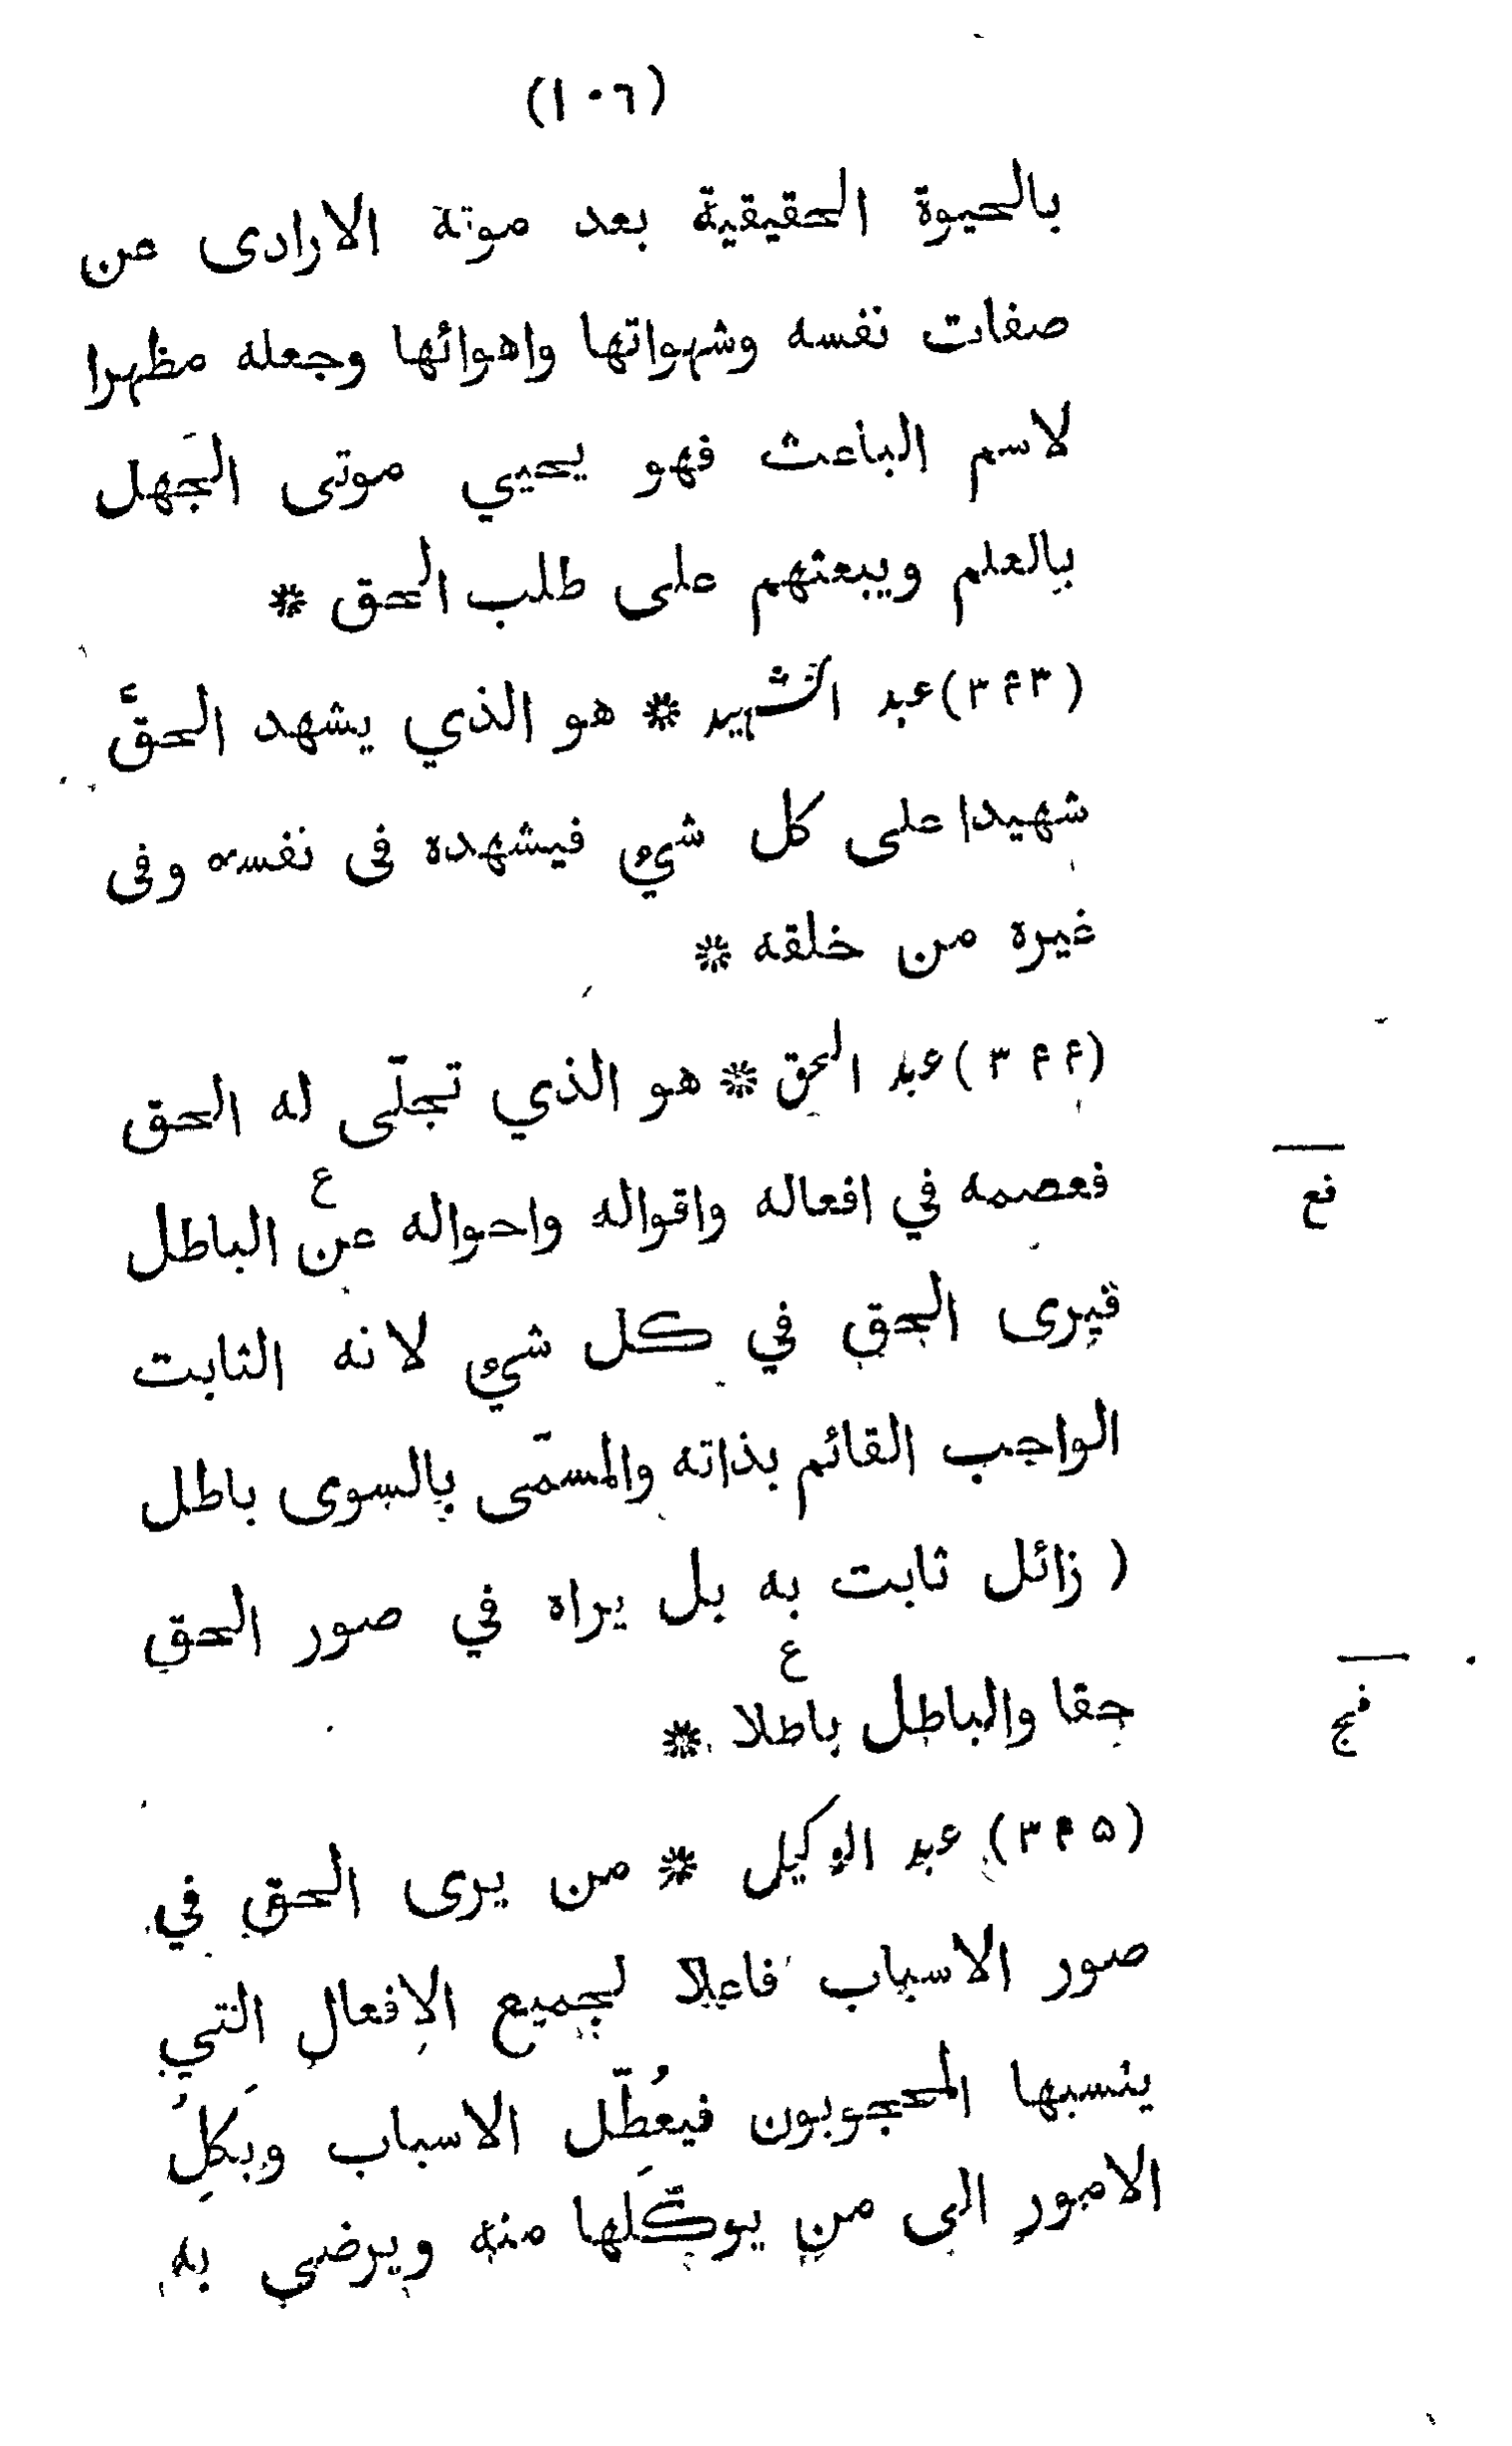 (١٠٦)
بالحيوة الحقيقية بعد موته الارادى عن
صفات نفسه وشهواتها واهوائها وجعله مظهرا
لاسم الباعث فهو يحيي موتى الجَهل
بالعلم ويبعثهم على طلب الحق *
(٣۴٣) عبد الشهيد * هو الذي يشهد الحقَّ
شهيدا على كل شيء فيشهده فى نفسه وفى
غيره من خلقه *
(٣۴۴) عبد الحق * هو الذي تجلّى له الحق
فعصمه في افعاله واقواله واحواله عن ع الباطل
فع
فيرى الحق في كل شيء لانه الثابت
الواجب القائم بذاته والمسمّى بالسوى باطل
( زائل ثابت به بل يراه في صور الحق
حقا والباطل باطلا ع *
فج
(٣۴۵) عبد الوكيل * من يرى الحق في
صور الاسباب فاعلا لجميع الافعال التي
ينسبها المحجوبون فيعُطّل الاسباب وبَكِلُ
الامور الى من يوكّلَها منه ويرضى به